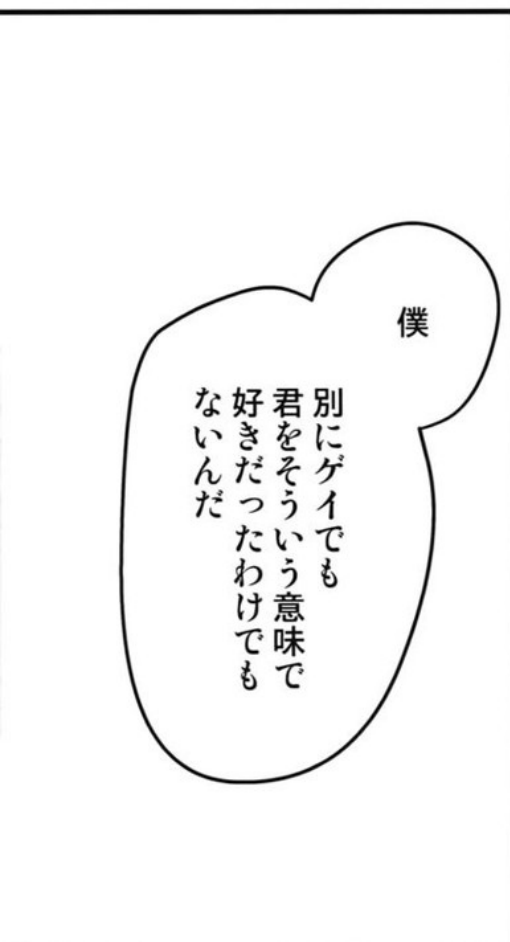 僕
別にゲイでも
君をそういう意味で
好きだったわけでも
ないんだ